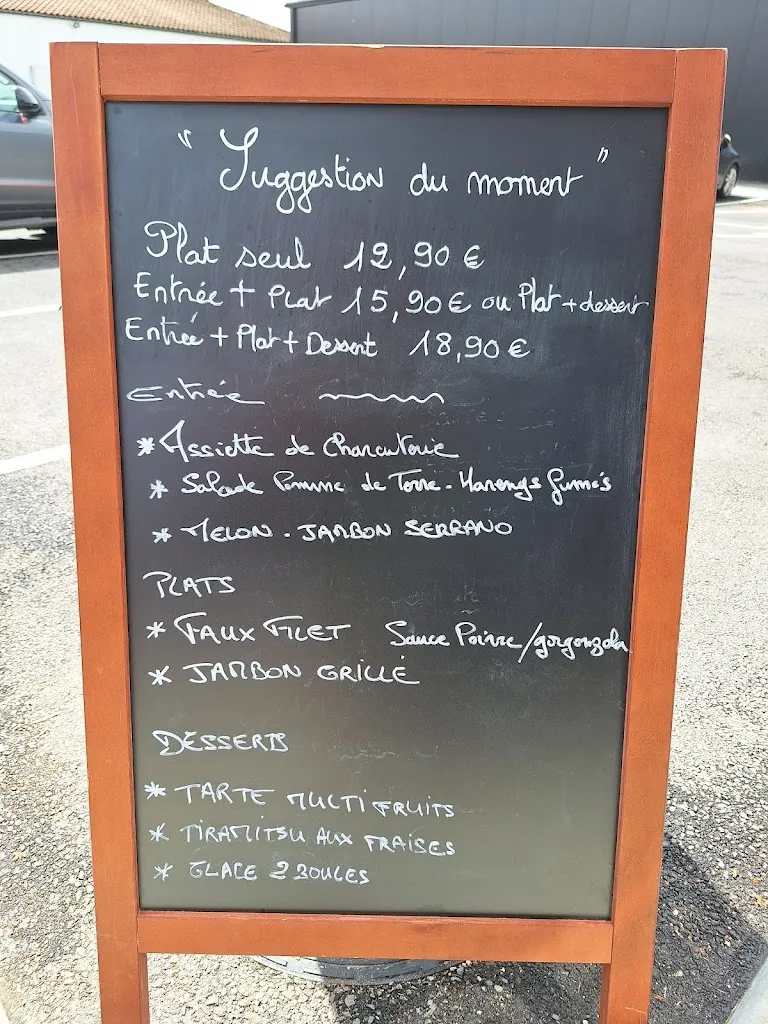 " Suggestion du moment "
Plat seul 12,90 €
Entrée + Plat 15,90 € ou Plat + dessert
Entrée + Plat + Dessert 18,90 €
Entrée
* Assiette de Charcuterie
* Salade Pomme de Terre - Harengs fumés
* MELON - JAMBON SERRANO
PLATS
* FAUX FILET Sauce Poivre/gorgonzola
* JAMBON GRILLÉ
DESSERTS
* TARTE MULTI FRUITS
* TIRAMITSU AUX FRAISES
* GLACE 2 BOULES